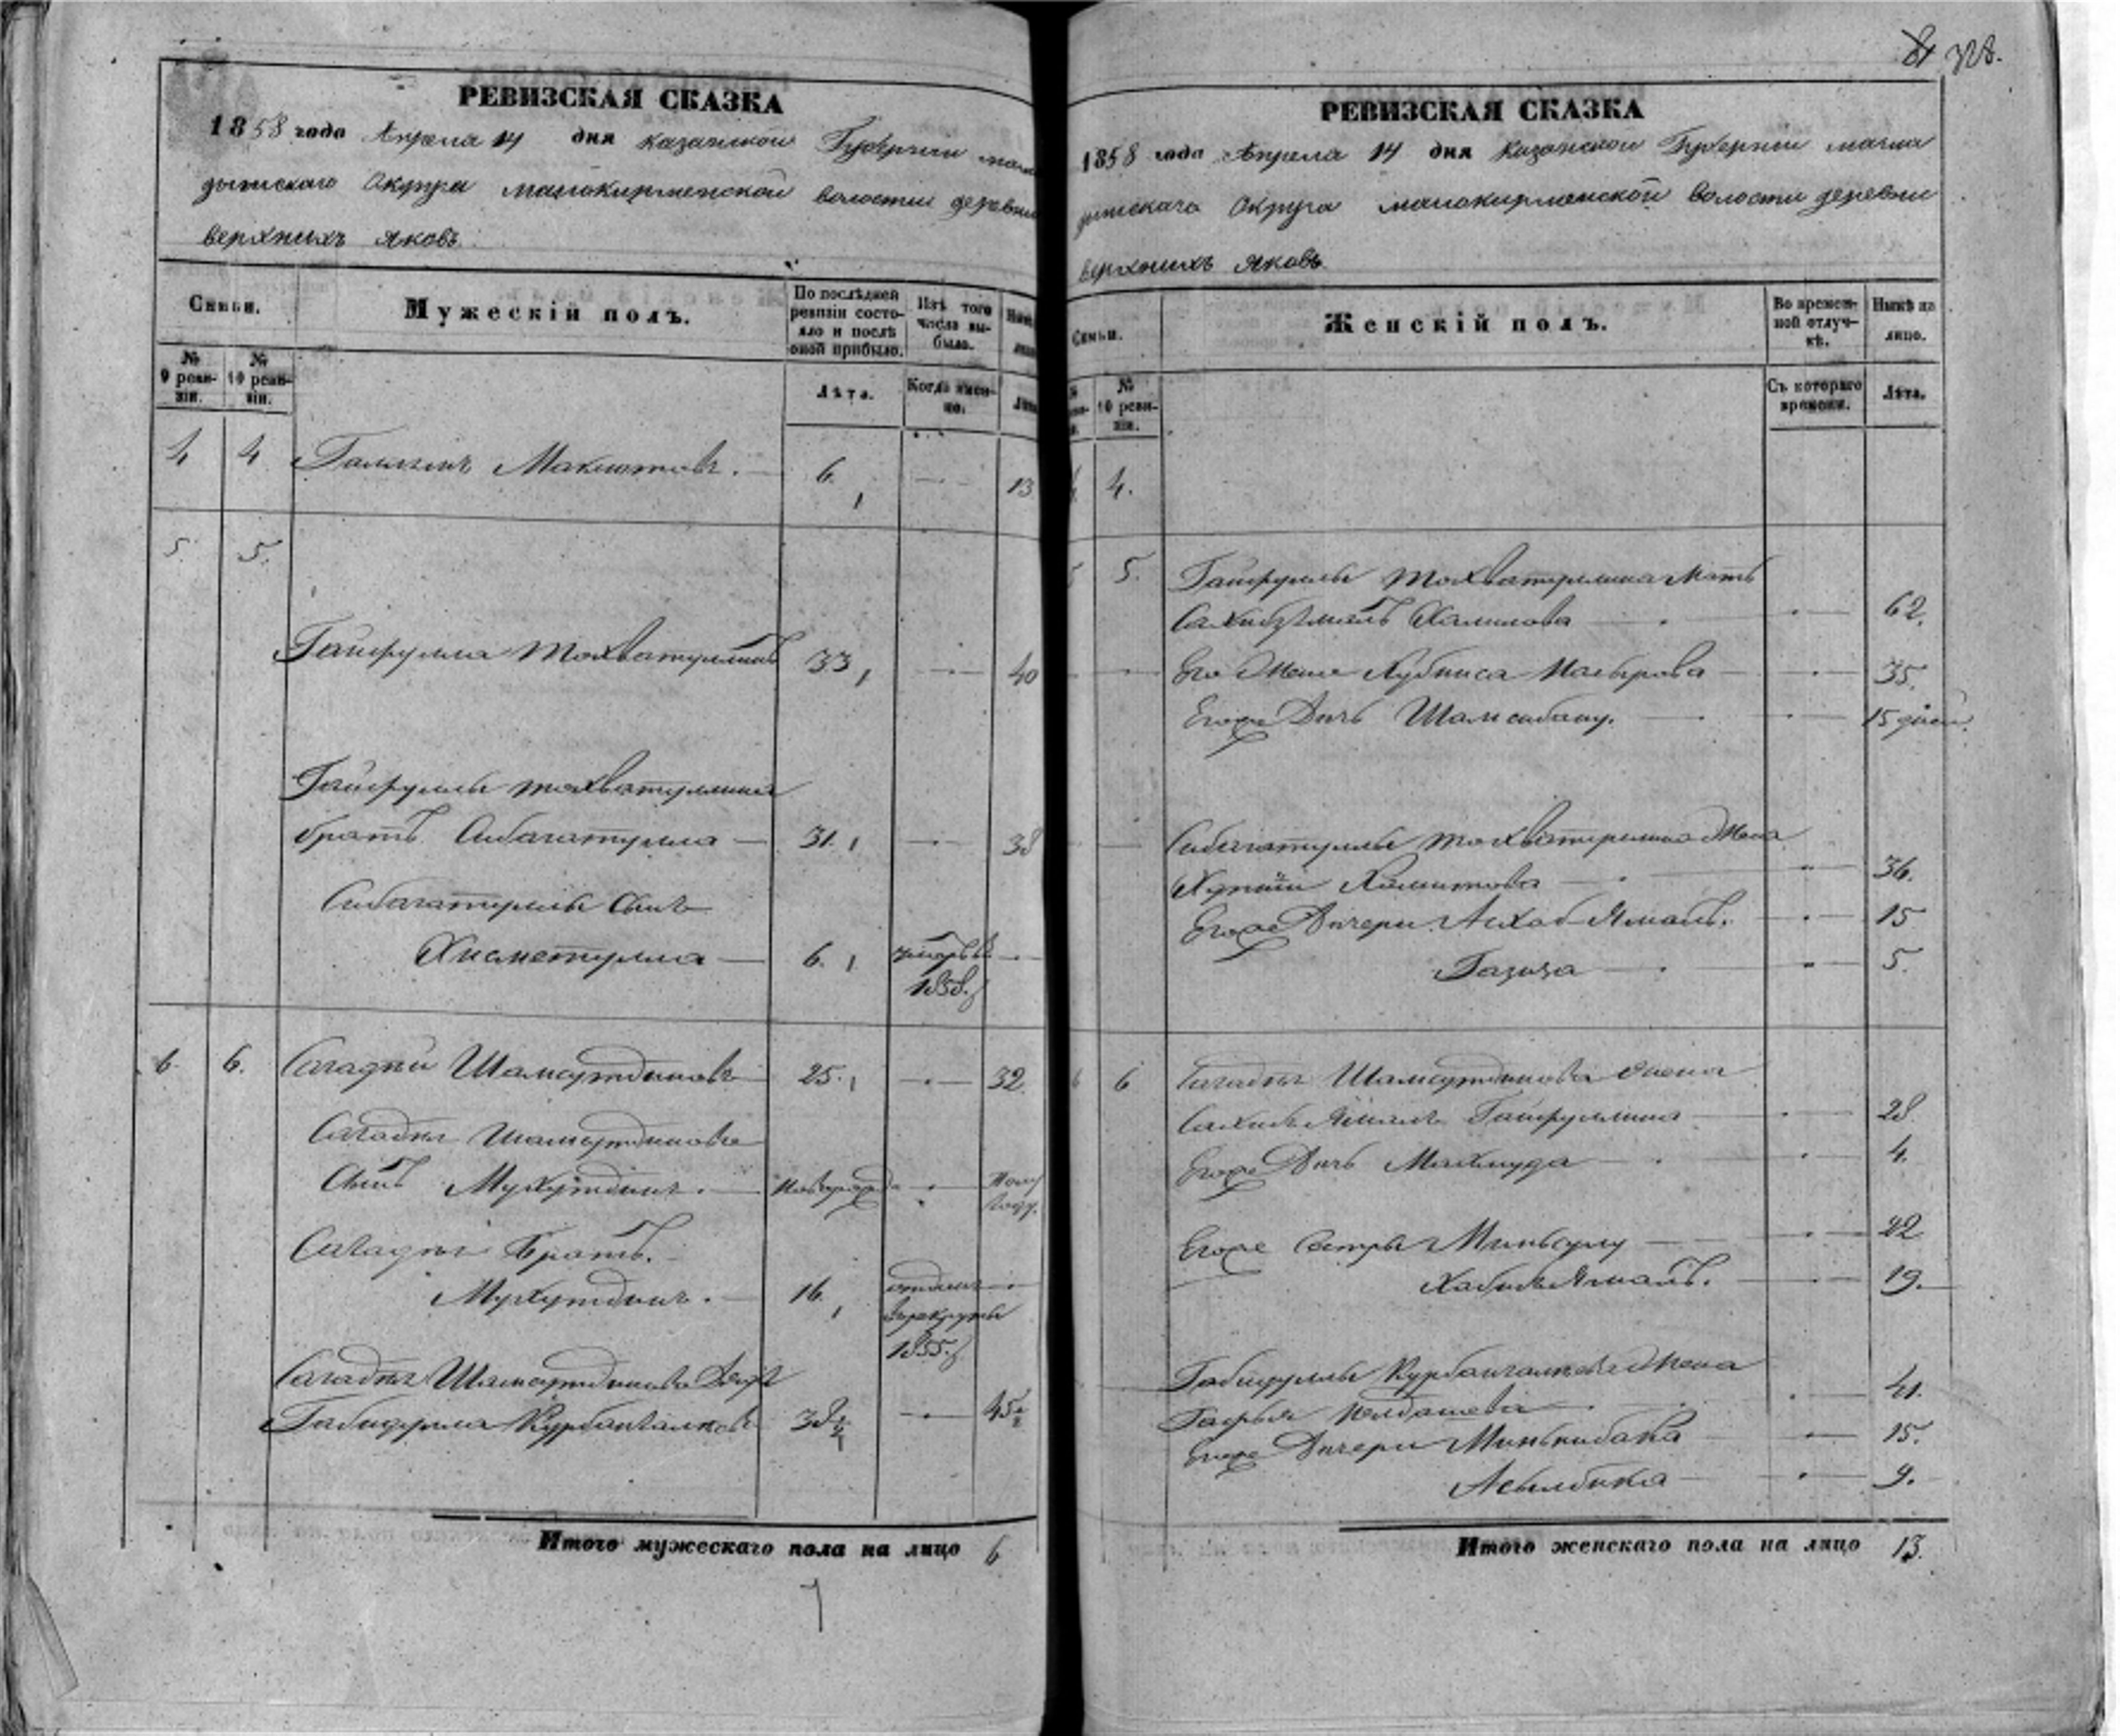 РЕВИЗСКАЯ СКАЗКА
1858 года Апреля 14 дня Казанской Губернии мама
дышскаго Округа малокирменской волости деревни
верхнихъ яковъ
Семьи.
Мужескій полъ.
По послѣдней ревизіи состояло и послѣ оной прибыло.
Изъ того числа выбыло.
№ 9 ревизіи.
№ 10 ревизіи.
Лѣта.
Когда именно.
4 4 Макшотовъ. 6. 13
5. 5.
Гайфулла Тохватуллинъ 33 40
Гайфуллы тохватуллина
братъ Сибагатулла 31. 38
Сибагатуллы сынъ
Хисметулла 6. 1858.
6. 6. Сагадпи Шамсутдиновъ 25. 32.
Сагадпи Шамсутдинова
Сынъ Мухутдинъ. полу году.
Сагадпи Братъ.
Мухутдинъ. 16. отданъ
в рекруты
1855.
Сагадпи Шамсутдинова дядя
Габидулла Курбангалиевъ 38½ 45½
Итого мужескаго пола на лицо 6
7
81 328.
РЕВИЗСКАЯ СКАЗКА
1858 года Апреля 14 дня Казанской Губерніи мама
дышскаго Округа малокирменской волости деревни
верхнихъ Яковъ
Семьи.
Женскій полъ.
Во временной отлучкѣ.
Нынѣ на лицо.
№ 10 ревизіи.
Съ котораго времени.
Лѣта.
4.
5. Гайфуллы Тохватуллина Мать
Халилова 62.
Его Жена Хубниса 35.
Егоже Дочь Шамсибану. 15 дней.
Сибагатуллы тохватуллина Жена
Хамитова 36.
Егоже Дочери Асхаб Ямалъ. 15
Газиза 5.
6 Сагадпи Шамсутдинова жена
Сахибъ Ямалъ Гайфуллина 28.
Егоже Дочь Махмуда 4.
Егоже Сестры Миньсулу 22
Хабибъ Ямалъ. 19.
Габидуллы Курбангалиева Жена
Юлдашева 41.
Егоже Дочери Миньнибана 15.
Асылбика 9.
Итого женскаго пола на лицо 13.